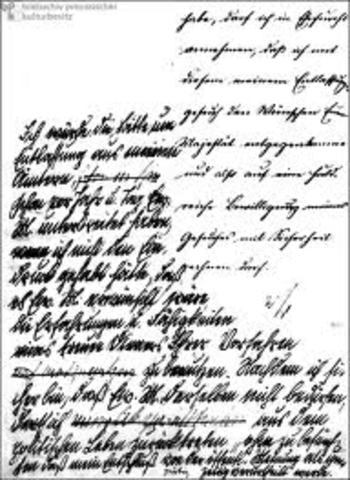 bildarchiv preussischer
kulturbesitz
habe, darf ich in Ehrfurcht
annehmen, daß ich mit
diesem meinem Entlassungs
gesuch den Wünschen
Majestät entgegenkomme
und also auf eine huld-
reiche Bewilligung meines
Gesuches mit Sicherheit
rechnen darf.
Ich würde die Bitte um
Entlassung aus meinen
Aemtern
schon vor Jahr u. Tag Ew.
M. unterbreitet haben,
wenn ich nicht den Ein-
druck gehabt hätte, daß
es Ew. M. erwünscht wäre
die Erfahrungen u. Fähigkeiten
eines treuen Dieners Ihrer Vorfahren
zu benutzen. Nachdem ich si-
cher bin, daß Ew. M. derselben nicht bedürfen,
darf ich aus dem
politischen Leben zurücktreten, ohne zu befürch-
ten daß mein Entschluß von der öffentl. Meinung als un-
zeitig verurtheilt werde.